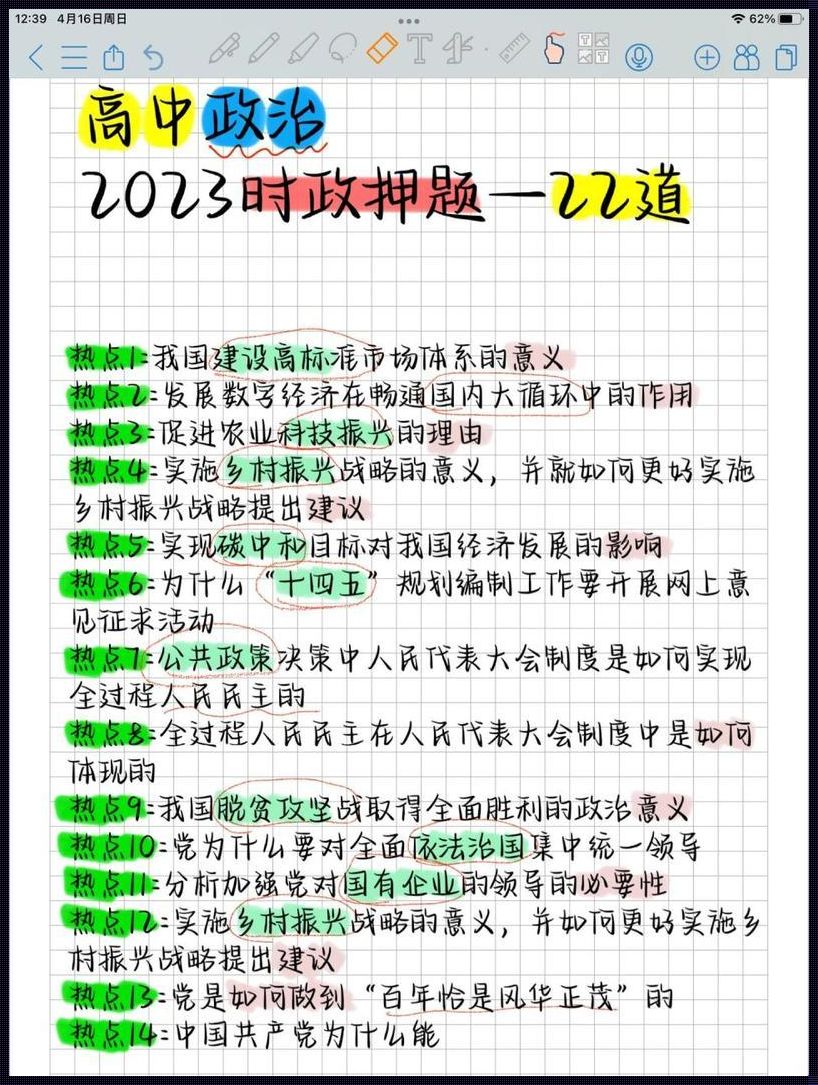 12:39 4月16日周日
62%
高中政治
2023时政押题一22道
热点1:我国建设高标准市场体系的意义
热点2:发展数字经济在畅通国内大循环中的作用
热点3:促进农业科技振兴的理由
热点4:实施乡村振兴战略的意义，并就如何更好实施
乡村振兴战略提出建议
热点5:实现碳中和目标对我国经济发展的影响
热点6:为什么“十四五”规划编制工作要开展网上意
见征求活动
热点7:公共政策决策中人民代表大会制度是如何实现
全过程人民民主的
热点8:全过程人民民主在人民代表大会制度中是如何
体现的
热点9:我国脱贫攻坚战取得全面胜利的政治意义
热点10:党为什么要对全面依法治国集中统一领导
热点11:分析加强党对国有企业的领导的必要性
热点12:实施乡村振兴战略的意义，并如何更好实施乡
村振兴战略提出建议
热点13:党是如何做到“百年恰是风华正茂”的
热点14:中国共产党为什么能